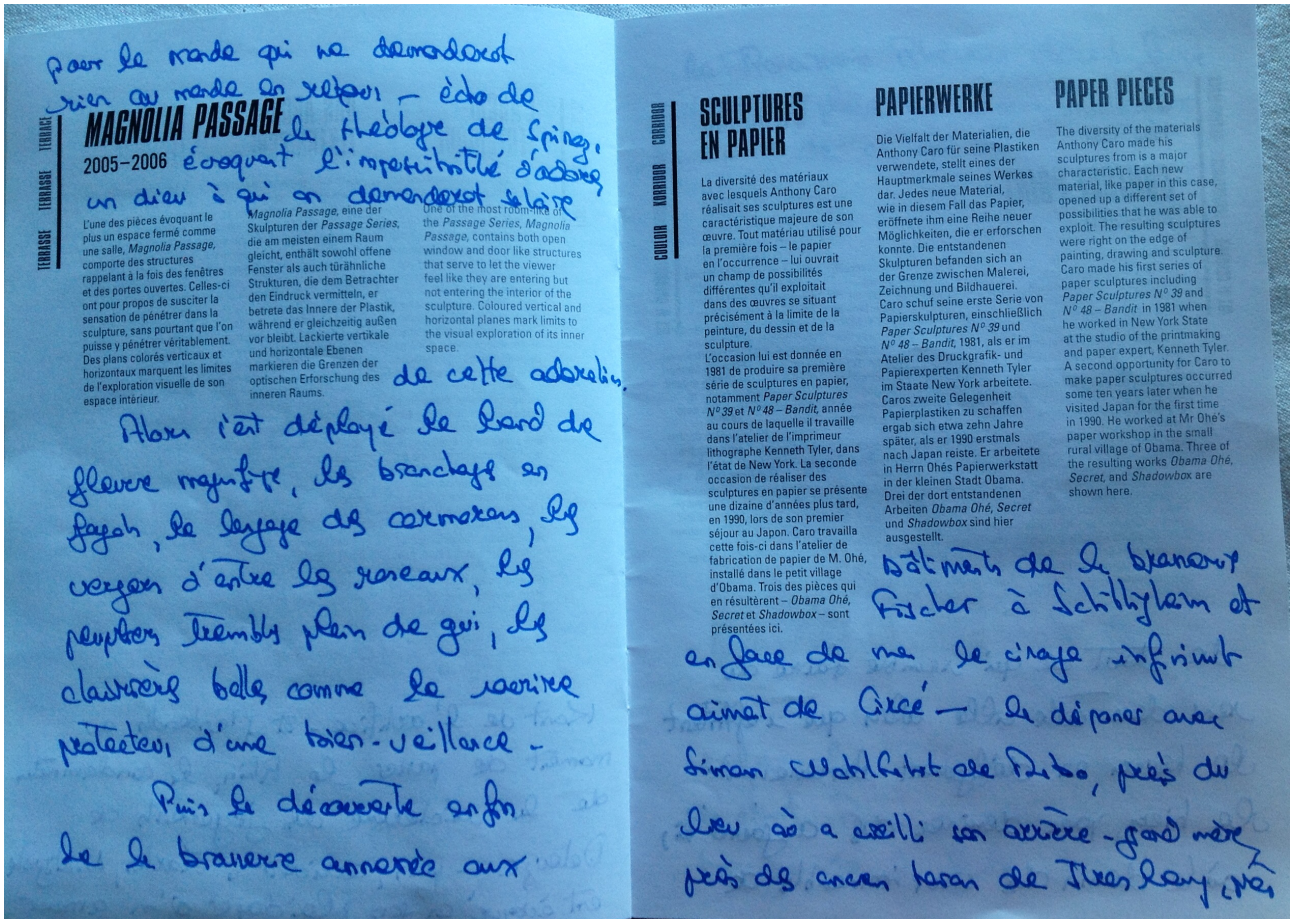 pour le monde qui ne demanderait
rien au monde en retour – écho de
la théologie de Spinoza,
évoquant l'impossibilité d'adorer
un dieu à qui on demanderait salaire
TERRASSE TERRASSE TERRACE
MAGNOLIA PASSAGE
2005–2006
L'une des pièces évoquant le
plus un espace fermé comme
une salle, Magnolia Passage,
comporte des structures
rappelant à la fois des fenêtres
et des portes ouvertes. Celles-ci
ont pour propos de susciter la
sensation de pénétrer dans la
sculpture, sans pourtant que l'on
puisse y pénétrer véritablement.
Des plans colorés verticaux et
horizontaux marquent les limites
de l'exploration visuelle de son
espace intérieur.
Magnolia Passage, eine der
Skulpturen der Passage Series,
die am meisten einem Raum
gleicht, enthält sowohl offene
Fenster als auch türähnliche
Strukturen, die dem Betrachter
den Eindruck vermitteln, er
betrete das Innere der Plastik,
während er gleichzeitig außen
vor bleibt. Lackierte vertikale
und horizontale Ebenen
markieren die Grenzen der
optischen Erforschung des
inneren Raums.
One of the most room-like of
the Passage Series, Magnolia
Passage, contains both open
window and door like structures
that serve to let the viewer
feel like they are entering but
not entering the interior of the
sculpture. Coloured vertical and
horizontal planes mark limits to
the visual exploration of its inner
space.
de cette adoration.
Alors s'est déployé le bord de
fleuve magnifique, les branchages en
fagots, le langage des cormorans, les
vergers d'entre les roseaux, les
peupliers trembles plein de gui, les
clairières belles comme le sourire
protecteur d'une bien-veillance –
Puis la découverte enfin
de la brasserie annexée aux
COULOIR KORRIDOR CORRIDOR
SCULPTURES
EN PAPIER
La diversité des matériaux
avec lesquels Anthony Caro
réalisait ses sculptures est une
caractéristique majeure de son
œuvre. Tout matériau utilisé pour
la première fois – le papier
en l'occurrence – lui ouvrait
un champ de possibilités
différentes qu'il exploitait
dans des œuvres se situant
précisément à la limite de la
peinture, du dessin et de la
sculpture.
L'occasion lui est donnée en
1981 de produire sa première
série de sculptures en papier,
notamment Paper Sculptures
Nº 39 et Nº 48 – Bandit, année
au cours de laquelle il travailla
dans l'atelier de l'imprimeur
lithographe Kenneth Tyler, dans
l'état de New York. La seconde
occasion de réaliser des
sculptures en papier se présente
une dizaine d'années plus tard,
en 1990, lors de son premier
séjour au Japon. Caro travailla
cette fois-ci dans l'atelier de
fabrication de papier de M. Ohé,
installé dans le petit village
d'Obama. Trois des pièces qui
en résultèrent – Obama Ohé,
Secret et Shadowbox – sont
présentées ici.
PAPIERWERKE
Die Vielfalt der Materialien, die
Anthony Caro für seine Plastiken
verwendete, stellt eines der
Hauptmerkmale seines Werkes
dar. Jedes neue Material,
wie in diesem Fall das Papier,
eröffnete ihm eine Reihe neuer
Möglichkeiten, die er erforschen
konnte. Die entstandenen
Skulpturen befanden sich an
der Grenze zwischen Malerei,
Zeichnung und Bildhauerei.
Caro schuf seine erste Serie von
Papierskulpturen, einschließlich
Paper Sculptures Nº 39 und
Nº 48 – Bandit, 1981, als er im
Atelier des Druckgrafik- und
Papierexperten Kenneth Tyler
im Staate New York arbeitete.
Caros zweite Gelegenheit
Papierplastiken zu schaffen
ergab sich etwa zehn Jahre
später, als er 1990 erstmals
nach Japan reiste. Er arbeitete
in Herrn Ohés Papierwerkstatt
in der kleinen Stadt Obama.
Drei der dort entstandenen
Arbeiten Obama Ohé, Secret
und Shadowbox sind hier
ausgestellt.
PAPER PIECES
The diversity of the materials
Anthony Caro made his
sculptures from is a major
characteristic. Each new
material, like paper in this case,
opened up a different set of
possibilities that he was able to
exploit. The resulting sculptures
were right on the edge of
painting, drawing and sculpture.
Caro made his first series of
paper sculptures including
Paper Sculptures Nº 39 and
Nº 48 – Bandit in 1981 when
he worked in New York State
at the studio of the printmaking
and paper expert, Kenneth Tyler.
A second opportunity for Caro to
make paper sculptures occurred
some ten years later when he
visited Japan for the first time
in 1990. He worked at Mr Ohe's
paper workshop in the small
rural village of Obama. Three of
the resulting works Obama Ohé,
Secret, and Shadowbox are
shown here.
bâtiments de la brasserie
Fischer à Schiltigheim et
en face de moi le visage infiniment
aimant de Circé – le déjeuner avec
Simon Wohlfahrt de
près du
lieu où a vieilli son arrière-grand mère,
près des anciens haras de
, près